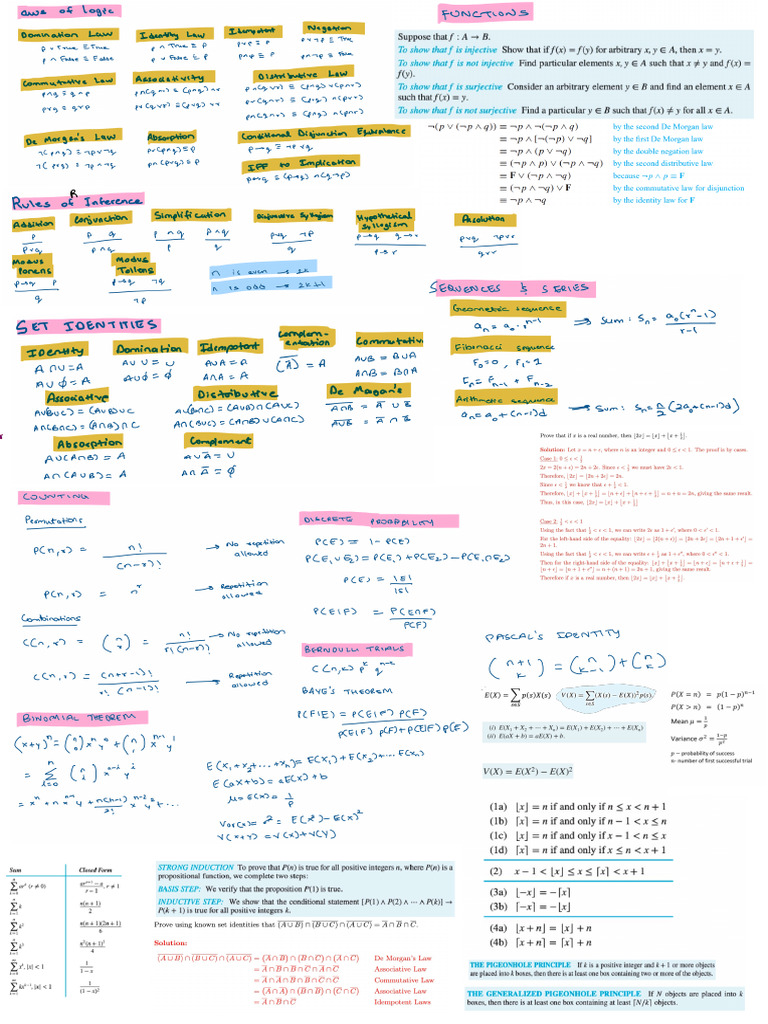 aws of Logic
Domination Law
p ∨ True ≡ True
p ∧ False ≡ False
Identity Law
p ∧ True ≡ p
p ∨ False ≡ p
Idempotent
p∨p ≡ p
p∧p ≡ p
Negation
p∨¬p ≡ True
p∧¬p ≡ False
Commutative Law
p∧q ≡ q∧p
p∨q ≡ q∨p
Associativity
Distributive Law
De Morgan's Law
¬(p∧q) ≡ ¬p∨¬q
¬(p∨q) ≡ ¬p∧¬q
Absorption
p∨(p∧q) ≡ p
p∧(p∨q) ≡ p
Conditional Disjunction Equivalence
p→q ≡ ¬p∨q
IFF to Implication
p↔q ≡ (p→q)∧(q→p)
FUNCTIONS
Suppose that f : A → B.
To show that f is injective Show that if f(x) = f(y) for arbitrary x, y ∈ A, then x = y.
To show that f is not injective Find particular elements x, y ∈ A such that x ≠ y and f(x) =
f(y).
To show that f is surjective Consider an arbitrary element y ∈ B and find an element x ∈ A
such that f(x) = y.
To show that f is not surjective Find a particular y ∈ B such that f(x) ≠ y for all x ∈ A.
¬(p ∨ (¬p ∧ q)) ≡ ¬p ∧ ¬(¬p ∧ q) by the second De Morgan law
≡ ¬p ∧ [¬(¬p) ∨ ¬q] by the first De Morgan law
≡ ¬p ∧ (p ∨ ¬q) by the double negation law
≡ (¬p ∧ p) ∨ (¬p ∧ ¬q) by the second distributive law
≡ F ∨ (¬p ∧ ¬q) because ¬p ∧ p ≡ F
≡ (¬p ∧ ¬q) ∨ F by the commutative law for disjunction
≡ ¬p ∧ ¬q by the identity law for F
Rules of Inference
R
Addition
p
p∨q
Conjunction
p q
p∧q
Simplification
p∧q
p
p∧q
q
Disjunctive Syllogism
p∨q ¬p
q
Hypothetical Syllogism
p→q q→r
p→r
Resolution
p∨q ¬p∨r
q∨r
Modus Ponens
p→q p
q
Modus Tollens
p→q ¬q
¬p
n is even → 2k
n is odd → 2k+1
SEQUENCES & SERIES
Geometric sequence
aₙ = a₀·rⁿ⁻¹ ⇒ Sum: Sₙ = a₀(rⁿ-1)
r-1
Fibonacci sequence
F₀=0, F₁=1
Fₙ = Fₙ₋₁ + Fₙ₋₂
Arithmetic sequence
aₙ = a₀+(n-1)d → Sum: Sₙ = n/2 (2a₀+(n-1)d)
SET IDENTITIES
Identity
A∩U=A
A∪ϕ=A
Domination
A∪U=U
A∩ϕ=ϕ
Idempotent
A∪A=A
A∩A=A
Complementation
(A̅)̅ = A
Commutativ
A∪B = B∪A
A∩B = B∩A
Associative
A∪(B∪C) = (A∪B)∪C
A∩(B∩C) = (A∩B)∩C
Distributive
A∪(B∩C) = (A∪B)∩(A∪C)
A∩(B∪C) = (A∩B)∪(A∩C)
De Morgan's
A̅∩̅B̅ = A̅ ∪ B̅
A̅∪̅B̅ = A̅ ∩ B̅
Absorption
A∪(A∩B) = A
A∩(A∪B) = A
Complement
A∪A̅=U
A∩A̅=ϕ
Prove that if x is a real number, then ⌊2x⌋ = ⌊x⌋ + ⌊x + ½⌋.
Solution: Let x = n + ϵ, where n is an integer and 0 ≤ ϵ < 1. The proof is by cases.
Case 1: 0 ≤ ϵ < ½
2x = 2(n + ϵ) = 2n + 2ϵ. Since ϵ < ½ we must have 2ϵ < 1.
Therefore, ⌊2x⌋ = ⌊2n + 2ϵ⌋ = 2n.
Since ϵ < ½ we know that ϵ + ½ < 1.
Therefore, ⌊x⌋ + ⌊x + ½⌋ = ⌊n + ϵ⌋ + ⌊n + ϵ + ½⌋ = n + n = 2n, giving the same result.
Thus, in this case, ⌊2x⌋ = ⌊x⌋ + ⌊x + ½⌋
Case 2: ½ < ϵ < 1
For the left-hand side of the equality: ⌊2x⌋ = ⌊2(n + ϵ)⌋ = ⌊2n + 2ϵ⌋ = ⌊2n + 1 + ϵ′⌋ =
2n + 1.
Therefore if x is a real number, then ⌊2x⌋ = ⌊x⌋ + ⌊x + ½⌋.
COUNTING
Permutations
P(n,r) = n! → No repetition
(n-r)! allowed
P(n,r) = nʳ → Repetition
allowed
Combinations
C(n,r) = (n r) = n! → No repetition
r!(n-r)! allowed
C(n,r) = (n+r-1)! → Repetition
r!(n-1)! allowed
DISCRETE PROBABILITY
P(E̅) = 1-P(E)
P(E₁∪E₂) = P(E₁)+P(E₂)-P(E₁∩E₂)
P(E) = |E|
|S|
P(E|F) = P(E∩F)
P(F)
BERNOULLI TRIALS
C(n,k) pᵏ qⁿ⁻ᵏ
BAYE'S THEOREM
P(F|E) = P(E|F) P(F)
P(E|F) P(F)+P(E|F̅) P(F̅)
E(X₁+X₂+...+Xₙ) = E(X₁)+E(X₂)+...E(Xₙ)
E(aX+b) = aE(X)+b
μ=E(X) = 1/p
Var(X) = σ² = E(X²)-E(X)²
V(X+Y) = V(X)+V(Y)
PASCAL'S IDENTITY
(n+1 k) = (n k-1) + (n k)
E(X) = ∑ p(s)X(s)
s∈S
V(X) = ∑ (X(s) − E(X))² p(s).
s∈S
(i) E(X₁ + X₂ + ⋯ + Xₙ) = E(X₁) + E(X₂) + ⋯ + E(Xₙ)
(ii) E(aX + b) = aE(X) + b.
V(X) = E(X²) − E(X)²
P(X = n) = p(1 − p)ⁿ⁻¹
P(X > n) = (1 − p)ⁿ
Mean μ = 1/p
Variance σ² = 1−p/p²
p – probability of success
n- number of first successful trial
BINOMIAL THEOREM
(x+y)ⁿ = (n 0) xⁿy⁰ + (n 1) xⁿ⁻¹y¹
= ∑ (n i) xⁿ⁻ⁱ yⁱ
= xⁿ + n xⁿ⁻¹ y + n(n-1)/2! xⁿ⁻² y² + ...
(1a) ⌊x⌋ = n if and only if n ≤ x < n + 1
(1b) ⌈x⌉ = n if and only if n − 1 < x ≤ n
(1c) ⌊x⌋ = n if and only if x − 1 < n ≤ x
(1d) ⌈x⌉ = n if and only if x ≤ n < x + 1
(2) x − 1 < ⌊x⌋ ≤ x ≤ ⌈x⌉ < x + 1
(3a) ⌊−x⌋ = −⌈x⌉
(3b) ⌈−x⌉ = −⌊x⌋
(4a) ⌊x + n⌋ = ⌊x⌋ + n
(4b) ⌈x + n⌉ = ⌈x⌉ + n
Sum Closed Form
STRONG INDUCTION To prove that P(n) is true for all positive integers n, where P(n) is a
propositional function, we complete two steps:
BASIS STEP: We verify that the proposition P(1) is true.
INDUCTIVE STEP: We show that the conditional statement [P(1) ∧ P(2) ∧ ⋯ ∧ P(k)] →
P(k + 1) is true for all positive integers k.
Prove using known set identities that (A ∪ B) ∩ (B ∪ C) ∩ (A ∪ C) = A ∩ B ∩ C.
Solution:
(A ∪ B) ∩ (B ∪ C) ∩ (A ∪ C) = (A ∩ B) ∩ (B ∩ C) ∩ (A ∩ C) De Morgan's Law
= A ∩ B ∩ B ∩ C ∩ A ∩ C Associative Law
= A ∩ A ∩ B ∩ B ∩ C ∩ C Commutative Law
= (A ∩ A) ∩ (B ∩ B) ∩ (C ∩ C) Associative Law
= A ∩ B ∩ C Idempotent Laws
THE PIGEONHOLE PRINCIPLE If k is a positive integer and k + 1 or more objects
are placed into k boxes, then there is at least one box containing two or more of the objects.
THE GENERALIZED PIGEONHOLE PRINCIPLE If N objects are placed into k
boxes, then there is at least one box containing at least ⌈N/k⌉ objects.